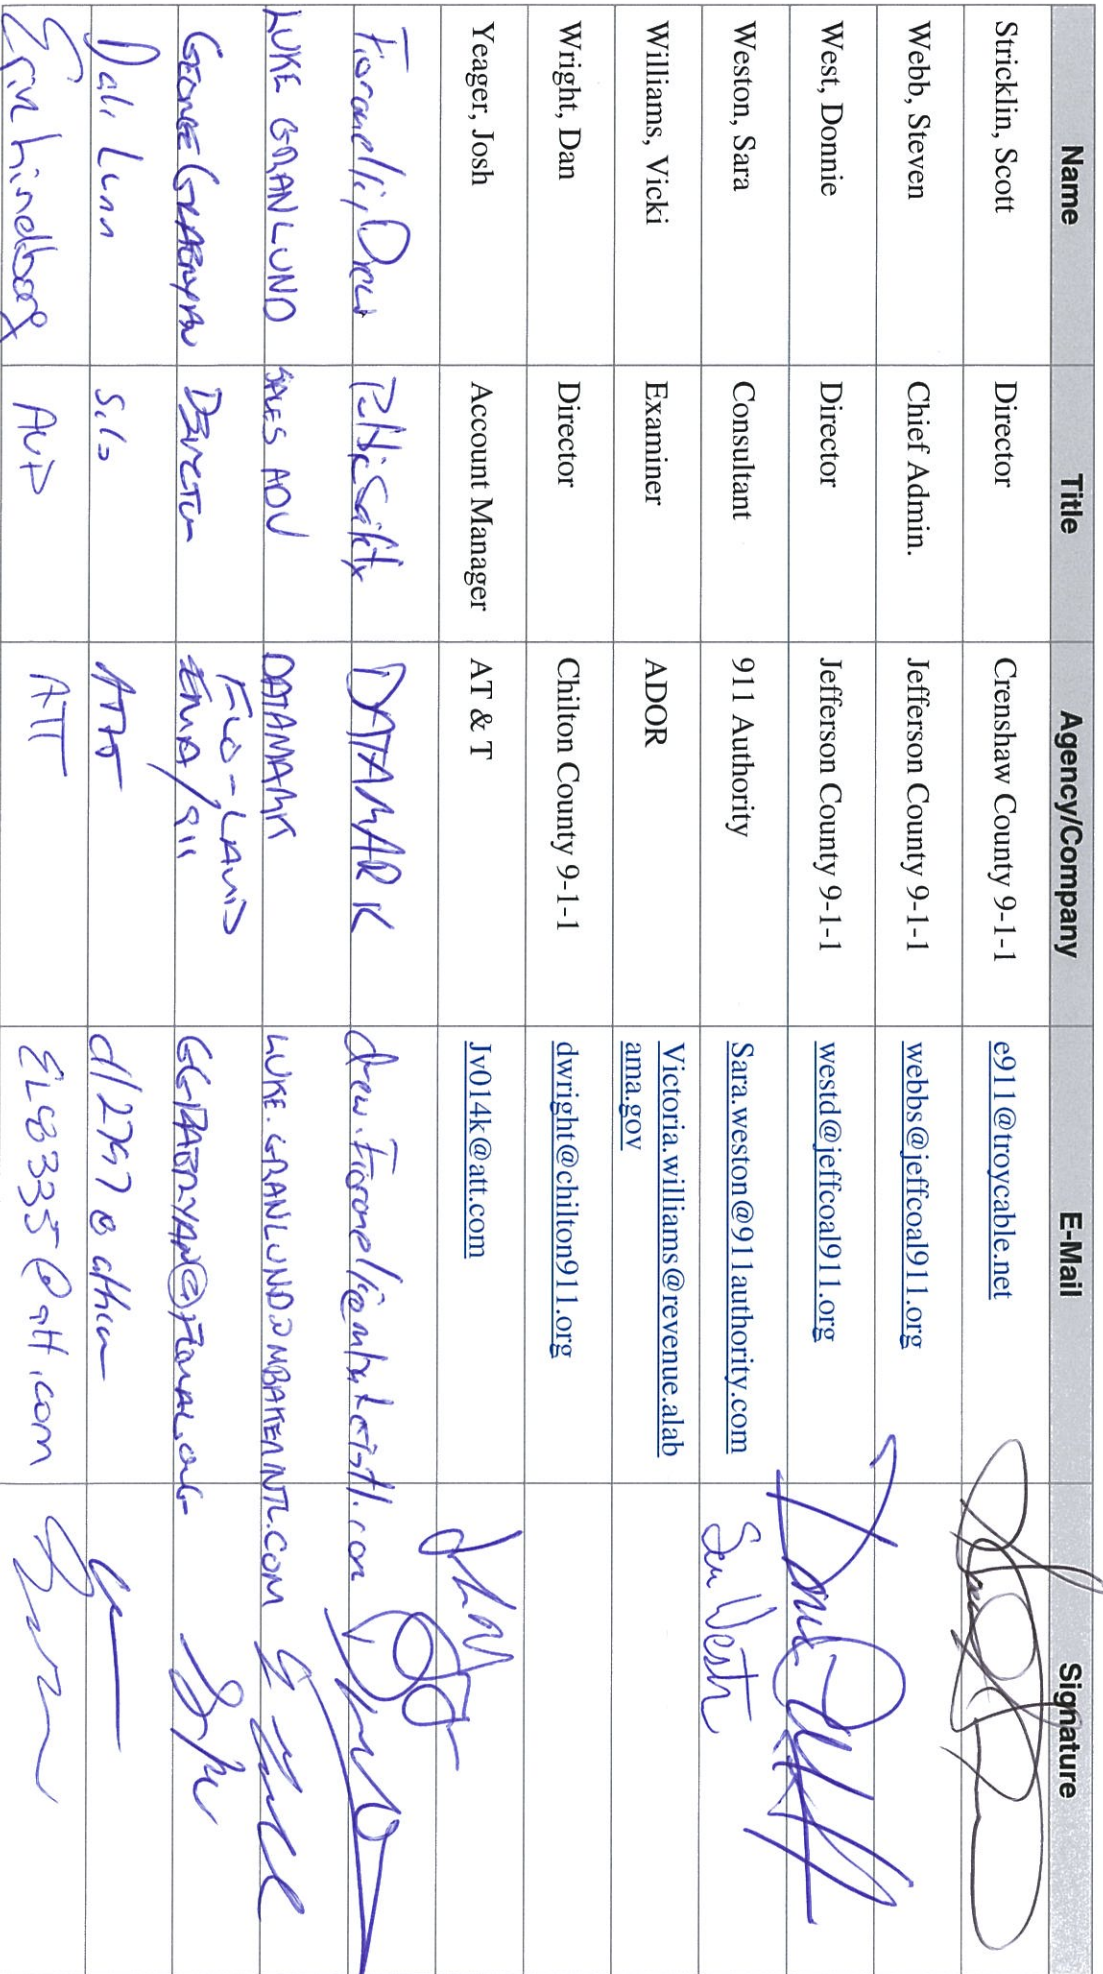 Name Title Agency/Company E-Mail Signature
Stricklin, Scott Director Crenshaw County 9-1-1 e911@troycable.net
Webb, Steven Chief Admin. Jefferson County 9-1-1 webbs@jeffcoal911.org
West, Donnie Director Jefferson County 9-1-1 westd@jeffcoal911.org
Weston, Sara Consultant 911 Authority Sara.weston@911authority.com
Williams, Vicki Examiner ADOR Victoria.williams@revenue.alab
ama.gov
Wright, Dan Director Chilton County 9-1-1 dwright@chilton911.org
Yeager, Josh Account Manager AT & T Jv014k@att.com
Fioranelli, Drew Public Safety DATAMARK
LUKE GRANLUND SALES ADV DATAMARK LUKE.GRANLUND@MBAKERINTL.COM
GEORGE GRABRYAN Director FLO-LAUD
EMA/911
Dale Lunn ATT
Erin Lindberg AVP ATT EL8335@att.com